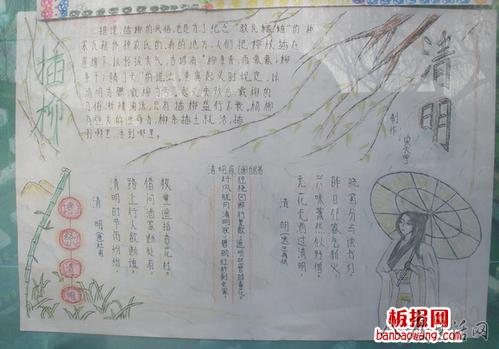 清明
插柳
据说,插柳的风俗,也是为了纪念"教民稼穑"的神
农氏的。有的地方,人们把柳枝插在
屋檐下,以预报天气,古谚有"柳条青,雨蒙蒙;柳
条干,晴了天"的说法。黄巢起义时规定,以
清明为期,戴柳为号。起义失败后,戴柳的
习俗渐被淘汰,只有插柳盛行不衰。杨柳
有强大的生命力,柳条插土就活,插
到哪里,活到哪里。
制作:
清明
清明时节雨纷纷,
路上行人欲断魂。
借问酒家何处有,
牧童遥指杏花村。
清明夜
好风胧月清明夜,碧砌红轩刺史家。
独绕回廊行复歇,遥听弦管暗看花。
清明
无花无酒过清明,
兴味萧然似野僧。
昨日邻家乞新火,
晓窗分与读书灯。
清明
板报网
banbaowang.com